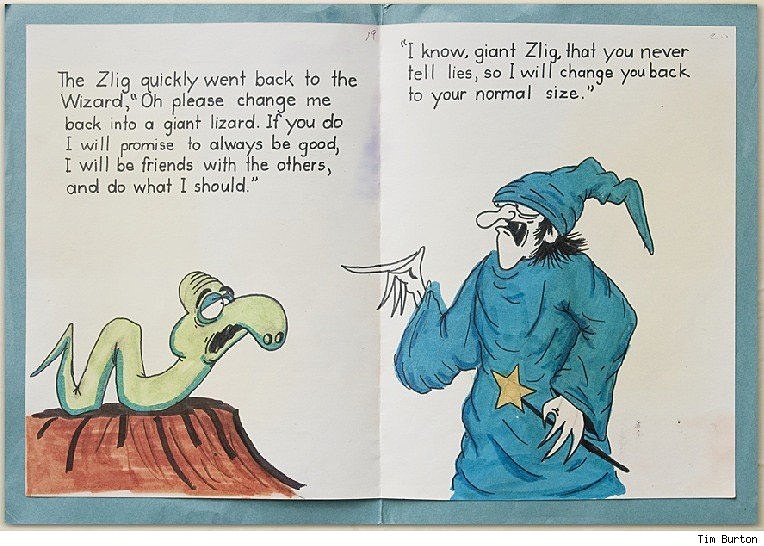 19
The Zlig quickly went back to the
Wizard,"Oh please change me
back into a giant lizard. If you do
I will promise to always be good,
I will be friends with the others,
and do what I should."
"I know, giant Zlig, that you never
tell lies, so I will change you back
to your normal size."
Tim Burton